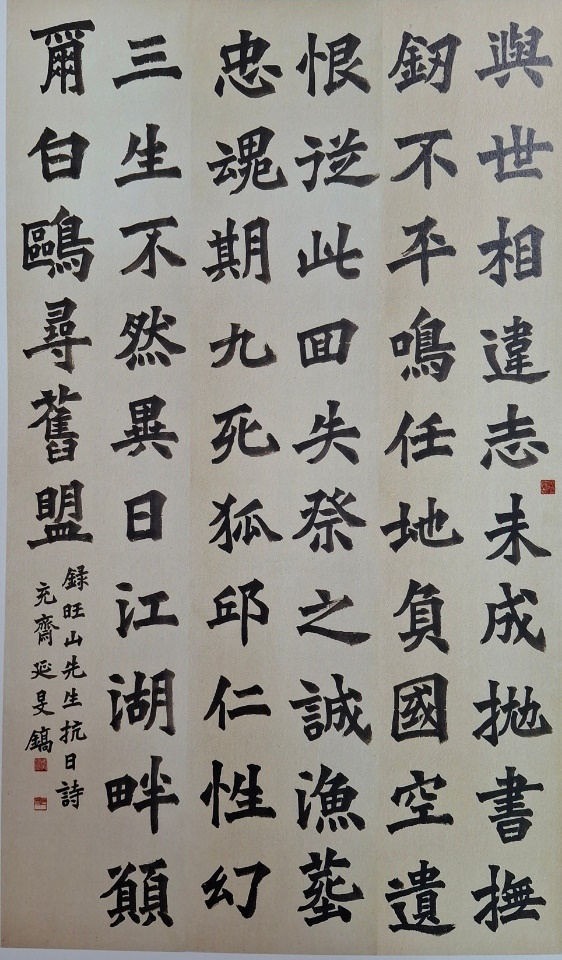 與世相違志未成拋書撫
釼不平鳴任地負國空遺
恨從此囬失祭之誠漁塟
忠魂期九死狐邱仁性幻
三生不然異日江湖畔願
爾白鷗尋舊盟
錄旺山先生抗日詩
充齋延旻鎬